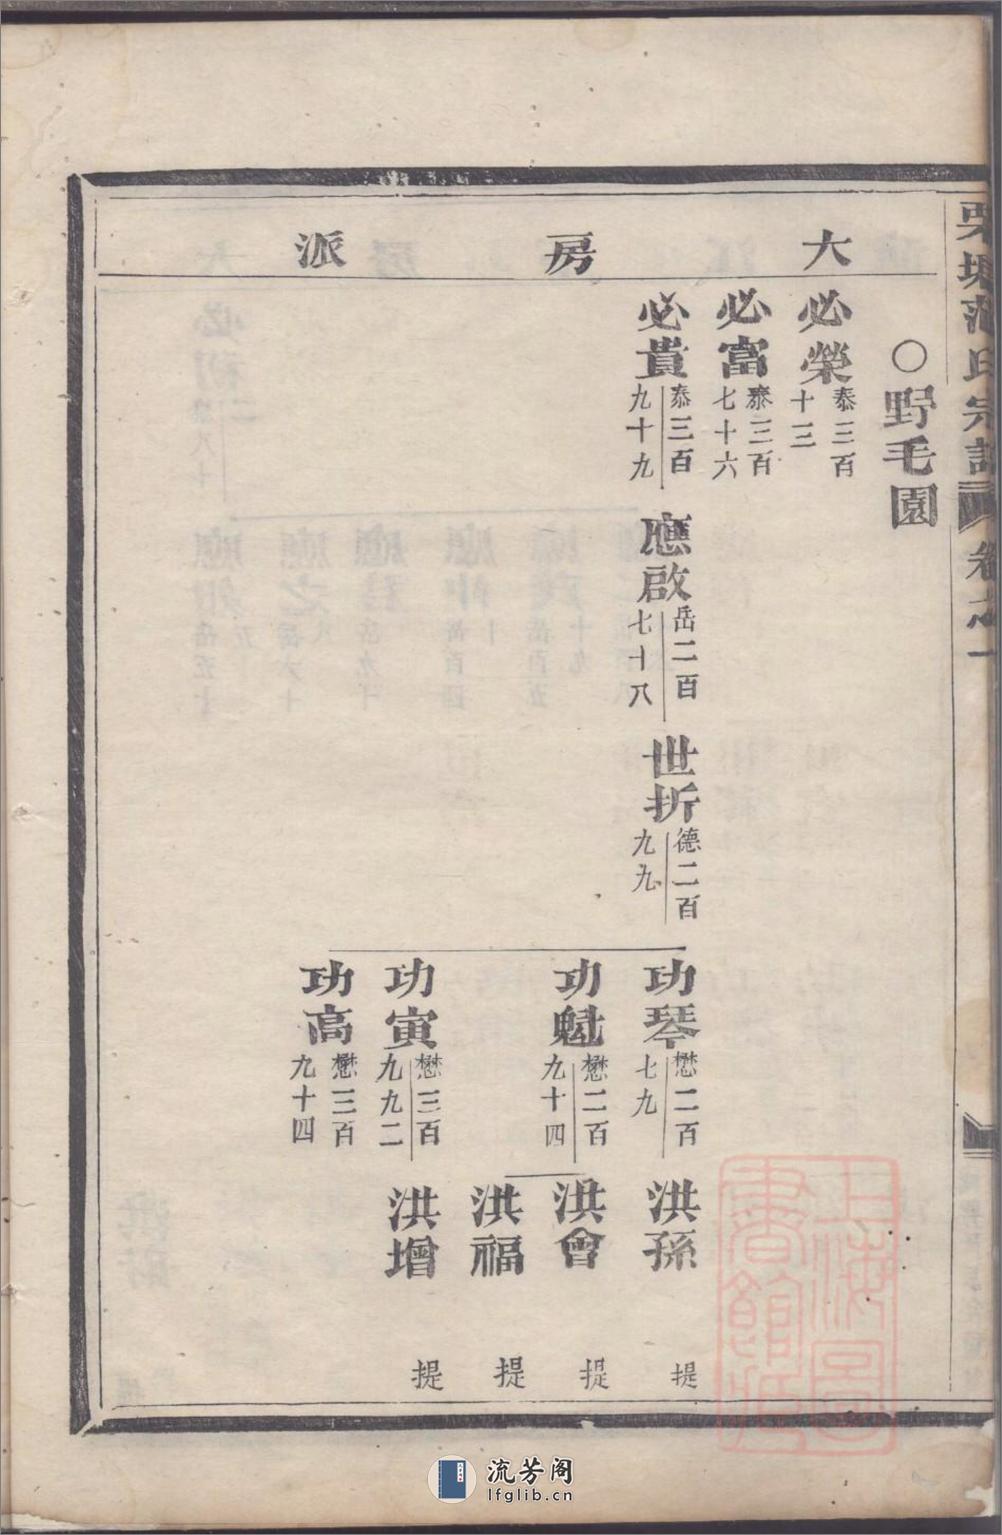 栗塘范氏宗譜 卷之一
大房派
○野毛園
必榮 泰三百十三
必富 泰三百七十六
必貴 泰三百九十九
應啟 岳二百七十八
世折 德二百九九
功琴 懋二百七九
功魁 懋二百九十四
功寅 懋三百九九二
功高 懋三百九十四
洪孫 提
洪會 提
洪福 提
洪增 提
上海圖書館藏
流芳阁
lfglib.cn